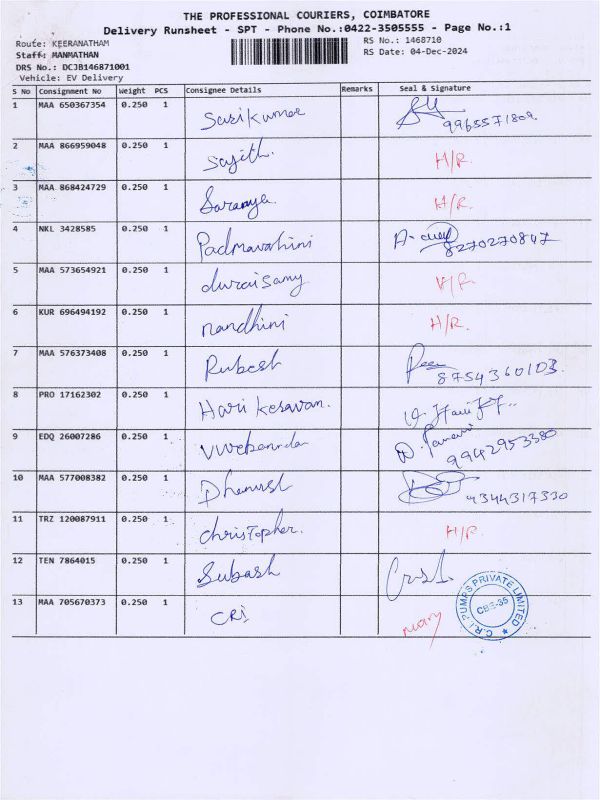 THE PROFESSIONAL COURIERS, COIMBATORE
Delivery Runsheet - SPT - Phone No.:0422-3505555 - Page No.:1
Route: KEERANATHAM
RS No.: 1468710
Staff: MANMATHAN
RS Date: 04-Dec-2024
DRS No.: DCJB146871001
Vehicle: EV Delivery
S No Consignment No Weight PCS Consignee Details Remarks Seal & Signature
1 MAA 650367354 0.250 1 Sasikumar 9965571809
2 MAA 866959048 0.250 1 Sajith. H/R.
3 MAA 868424729 0.250 1 Saranya. H/R.
4 NKL 3428585 0.250 1 Padmavahini 8270270847
5 MAA 573654921 0.250 1 duraisamy H/R.
6 KUR 696494192 0.250 1 nandhini H/R.
7 MAA 576373408 0.250 1 Rubesh 8754360103.
8 PRO 17162302 0.250 1 Hari Kesavan.
9 EDQ 26007286 0.250 1 9942953380
10 MAA 577008382 0.250 1 Dhanush 9344317330
11 TRZ 120087911 0.250 1 christopher. H/R.
12 TEN 7864015 0.250 1 Subash
13 MAA 705670373 0.250 1 CRI
C.R.I PUMPS PRIVATE LIMITED
CBE-35